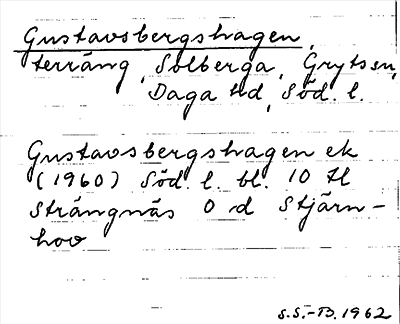 Gustavsbergshagen,
terräng, Solberga, Gryts sn,
Daga hd, Söd. l.
Gustavsbergshagen ek
(1960) Söd. l. bl. 10 tl
Strängnäs O d Stjärn-
hov
S.S.-B. 1962